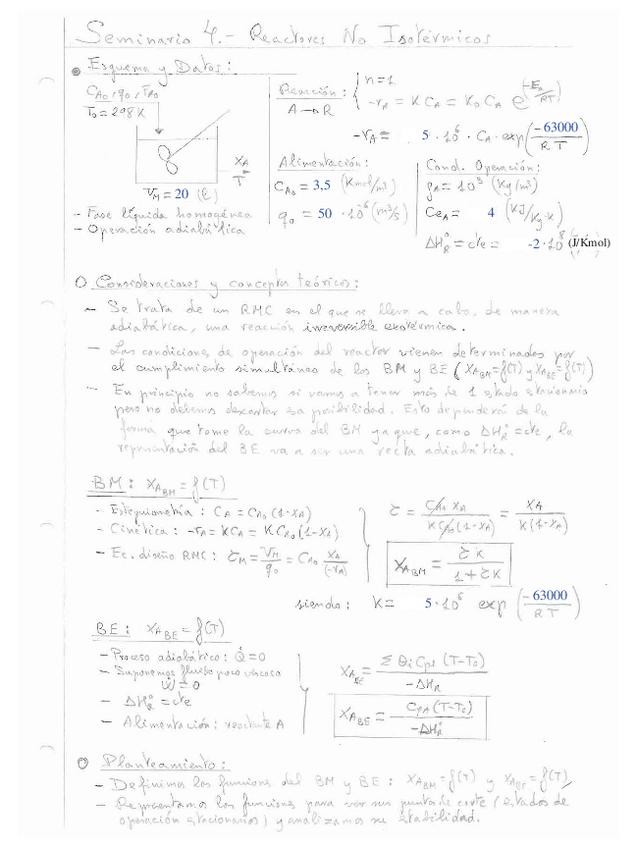 Seminario 4.- Reactores No Isotérmicos
Esquema y Datos:
CAo, qo, TAo
To = 298K
XA
T
VM = 20 (ℓ)
- Fase líquida homogénea
- Operación adiabática
Reacción:
A → R
n = 1
-rA = K CA = Ko CA e^(-Ea/RT)
-rA = 5 · 10^6 · CA · exp(-63000/RT)
Alimentación:
CAo = 3,5 (Kmol/m³)
qo = 50 · 10^-6 (m³/s)
Cond. Operación:
ρA = 10^3 (Kg/m³)
CeA = 4 (KJ/Kg·K)
ΔH°R = cte = -2 · 10^8 (J/Kmol)
Consideraciones y conceptos teóricos:
- Se trata de un RMC en el que se lleva a cabo, de manera
adiabática, una reacción irreversible exotérmica.
- Las condiciones de operación del reactor vienen determinados por
el cumplimiento simultáneo de los BM y BE (XABM = f(T) y XABE = f(T))
- En principio no sabemos si vamos a tener más de 1 estado estacionario
pero no debemos descartar esa posibilidad. Esto dependerá de la
forma que tome la curva del BM ya que, como ΔH°R = cte, la
representación del BE va a ser una recta adiabática.
BM: XABM = f(T)
- Estequiometría: CA = CAo (1-XA)
- Cinética: -rA = KCA = KCAo (1-XA)
- Ec. diseño RMC: τM = VM/qo = CAo XA/(-rA)
τ = CAo XA / K CAo (1-XA) = XA / K(1-XA)
XABM = τK / 1 + τK
siendo: K = 5 · 10^6 exp (-63000/RT)
BE: XABE = f(T)
- Proceso adiabático: Q̇ = 0
- Suponemos fluido poco viscoso
Ẇ = 0
- ΔH°R = cte
- Alimentación: reactante A
XABE = Σ θi Cpi (T-To) / -ΔHR
XABE = CPA (T-To) / -ΔH°R
Planteamiento:
- Definimos las funciones del BM y BE: XABM = f(T) y XABE = f(T)
- Representamos las funciones para ver sus puntos de corte (estados de
operación estacionarios) y analizamos su estabilidad.